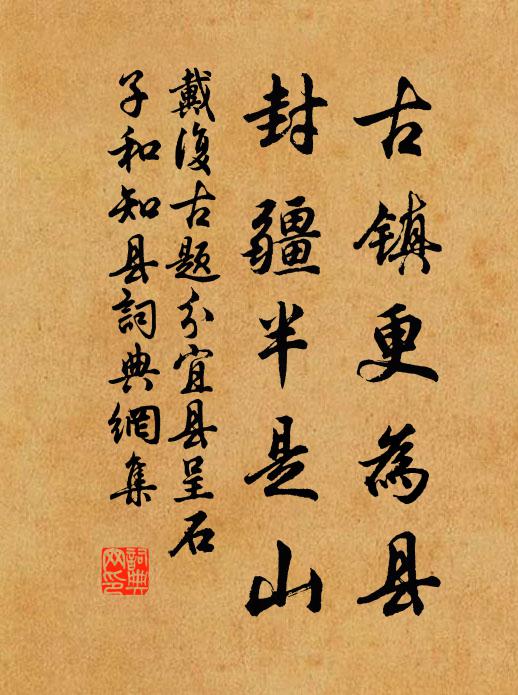 古镇更為县
封疆半是山
戴復古題分宜县呈石
子和知县詞典網集
詞典
网印